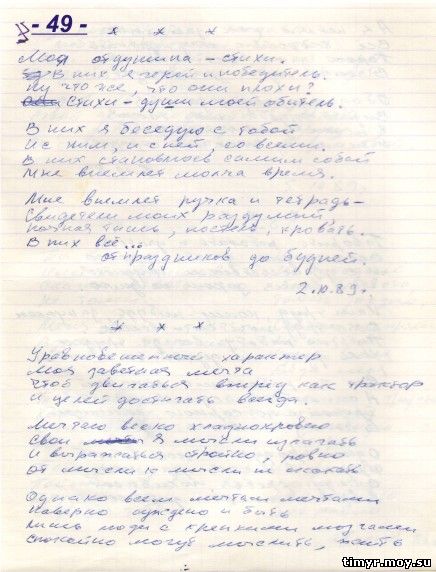 - 49 -
х х х
Моя отдушина – стихи.
В них я герой и победитель.
Ну что же, что они плохи?
Стихи – души моей обитель.
В них я беседую с тобой
И с ним, и с ней, со всеми.
В них становлюсь самим собой
Мне внемлет молча время.
Мне внемлет ручка и тетрадь –
Свидетели моих раздумий,
Ночная тишь, постель, кровать.
В них всё...
от праздников до будней.
2.10.83г.
х х х
Уравновешенный характер
Моя заветная мечта
Чтоб двигаться вперед как трактор
И целей достигать всегда.
Мечтаю всего хладнокровно
Свои я мысли излагать
И выражаться стройно, ровно
От мысли к мысли не скакать
Однако всем мечтам мечтами
Наверно суждено и быть
Лишь люди с крепкими мозгами
Спокойно могут мыслить, жить
timyr.moy.su